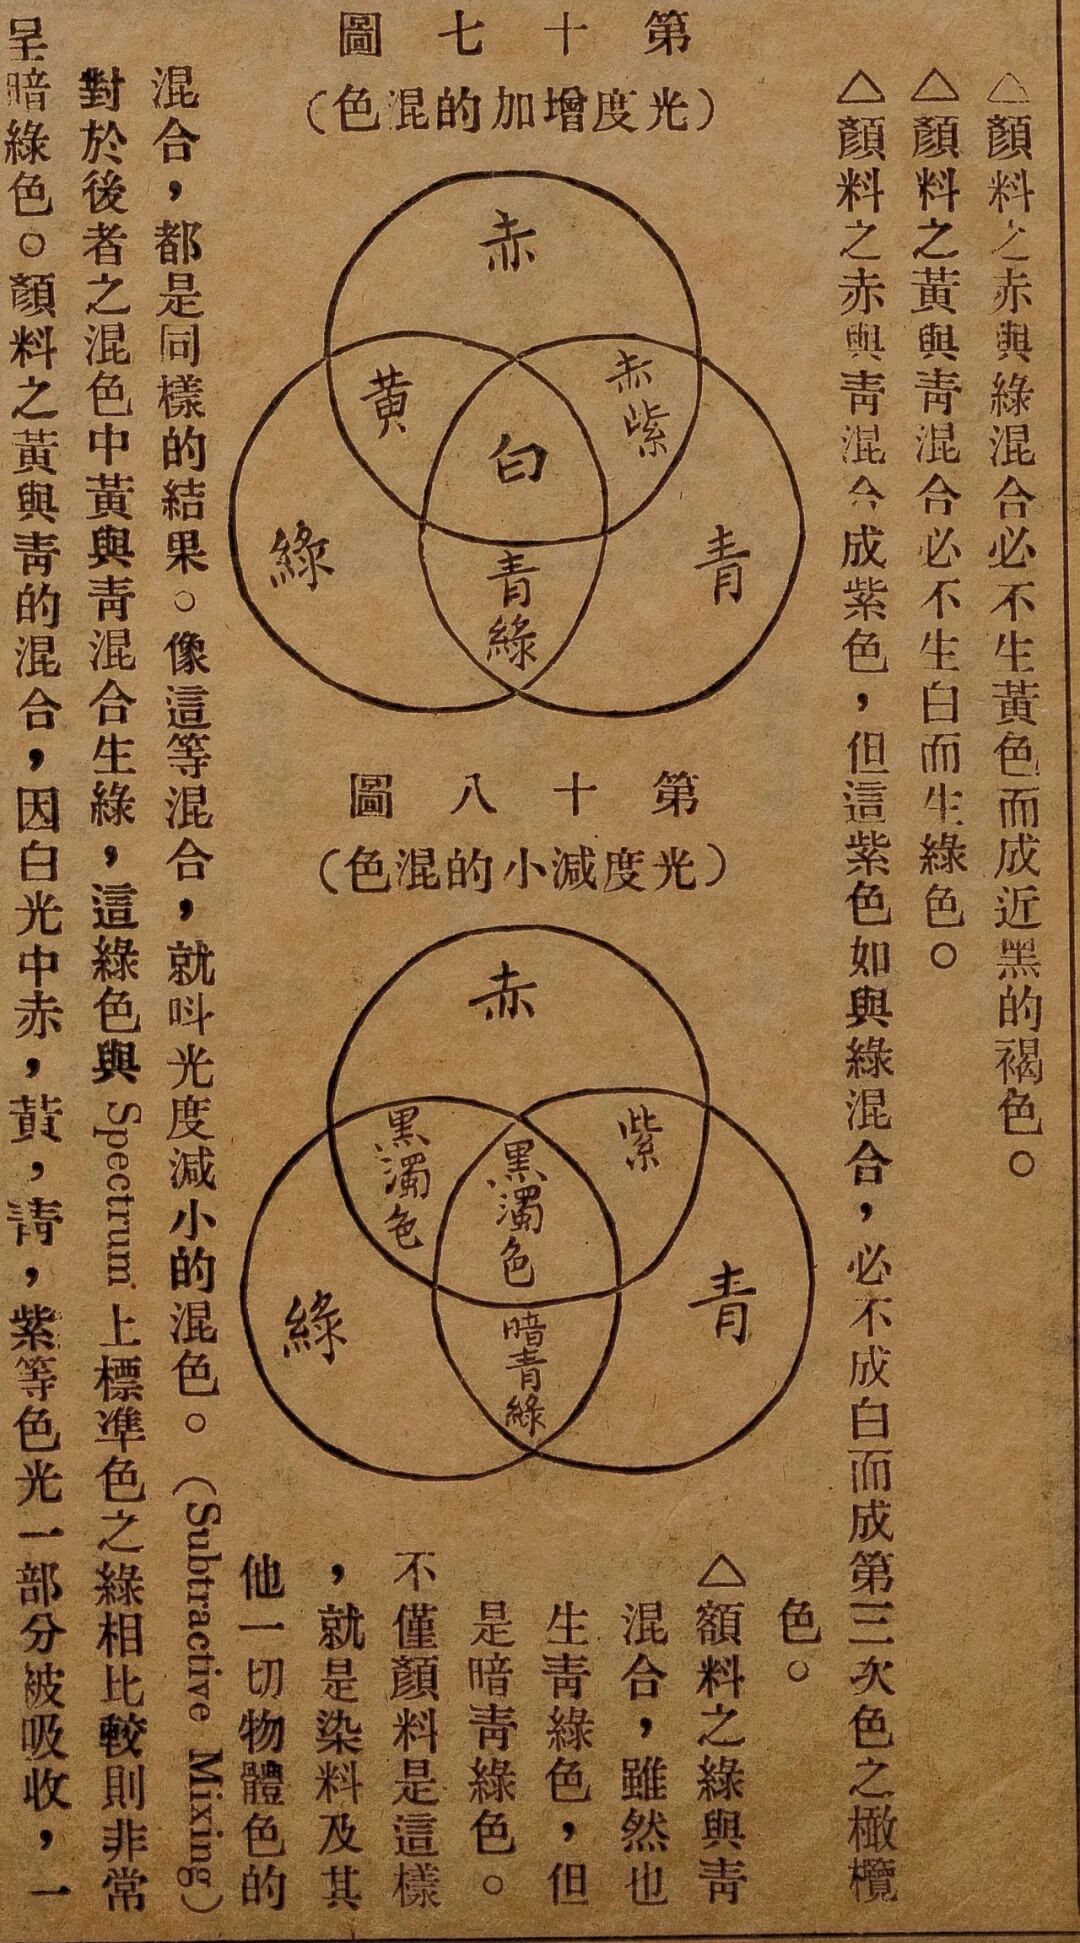 △顏料之赤與綠混合必不生黃色而成近黑的褐色。
△顏料之黃與靑混合必不生白而生綠色。
△顏料之赤與靑混合成紫色，但這紫色如與綠混合，必不成白而成第三次色之橄欖
色。
第十七圖
（光度增加的混色）
赤
黃
赤紫
白
綠
青
青綠
第十八圖
（光度減小的混色）
赤
黑濁色
黑濁色
紫
綠
青
暗青綠
△額料之綠與靑
混合，雖然也
生靑綠色，但
是暗靑綠色。
不僅顏料是這樣
，就是染料及其
他一切物體色的
混合，都是同樣的結果。像這等混合，就呌光度減小的混色。（Subtractive Mixing）
對於後者之混色中黃與靑混合生綠，這綠色與Spectrum上標準色之綠相比較則非常
呈暗綠色。顏料之黃與靑的混合，因白光中赤，黃，靑，紫等色光一部分被吸收，一